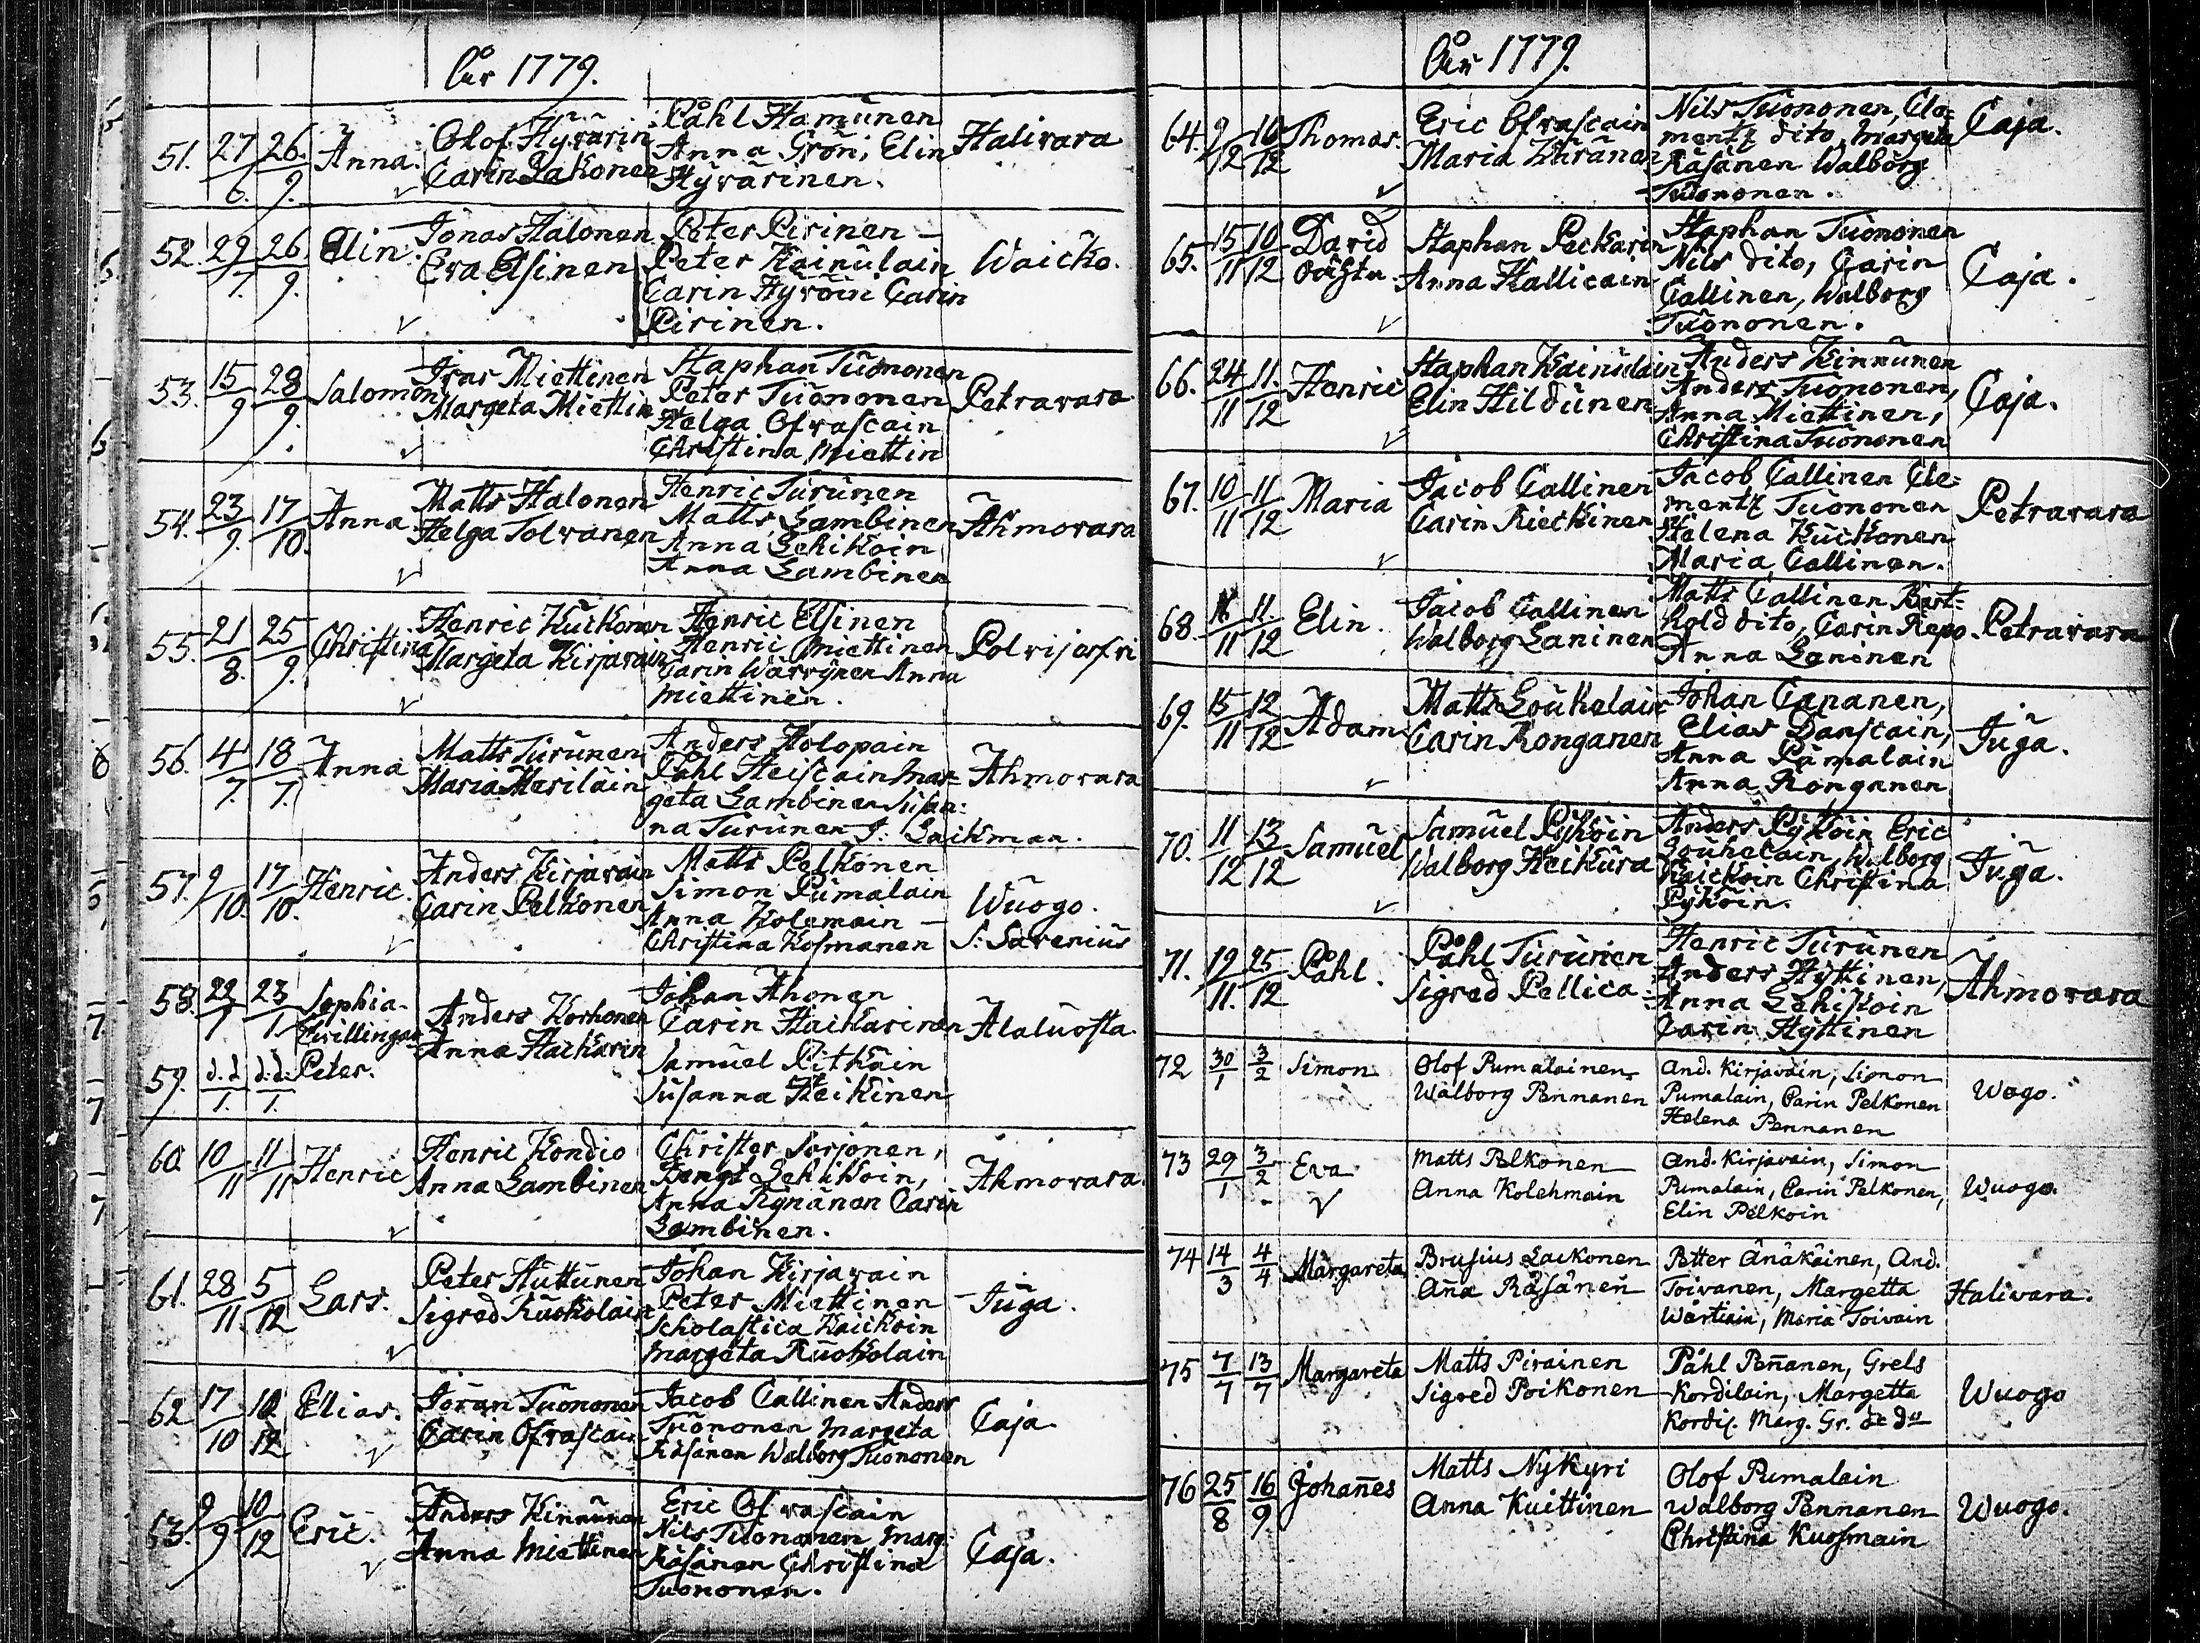 År 1779.
51. 27/6. 26./9. Anna. Olof Hyvärin Påhl Hamunen Halivara
Carin Lakonen Anna Grön, Elin
Hyvärinen.
52. 29/7. 26/9. Elin. Jonas Halonen Peter Pirinen – Waicko.
Eva Elsinen Peter Kainulain
Carin Hyvöin Carin
Pirinen.
53. 15/9 28/9. Salomon Ivar Miettinen Staphan Tuononen Petravara
Margeta Miettin Peter Tuononen
Helga Ofvascain
Christina Miettin
54. 23/9. 17/10. Anna Matts Halonen Henric Turunen Ahmovara
Helga Tolvanen Matts Lambinen
Anna Lehikoin
Anna Lambinen
55. 21/8. 25/9. Christina Henric Kuckonen Henric Elsinen Polvijerfvi
Margeta Kirjavain Henric Miettinen
Carin Wärrynen Anna
Miettinen.
56. 4/7. 18/7. Anna Matts Turunen Anders Holopain Ahmovara
Maria Meriläin Påhl Heiscain Mar=
geta Lambinen Susan:
na Turunen J: Laihman.
57. 9/10. 17/10. Henric. Anders Kirjavain Matts Pelkonen Wuogo.
Carin Pelkonen Simon Pumalain
Anna Kolemain –
Christina Kosmanen S: Sarenius
58. 22/7 23/7. Sophia. Anders Korhonen Johan Ahonen Alaluosta.
Tvillingar Anna Hackarin Carin Haikarinen
59. d.d/7. d:d:/7. Peter. Samuel Pitkäin
Susanna Heikinen
60. 10/11 11/11 Henric Henric Kondio Christer Sorjonen, Ahmovara.
Anna Lambinen Bengt Lehikoin,
Anna Tignänen Carin
Lambinen.
61. 28/11. 5/12 Lars. Peter Huttunen Johan Kirjavain Juga.
Sigred Ruokolain Peter Miettinen
Scholastica Kaickoin
Margeta Ruokolain
62 17/10 10/12 Elias. Jöran Tuononen Jacob Callinen Anders Caja
Carin Ofvascain Tuononen Margeta
Räsänen Walborg Tuononen
63. 9/9 10/12 Eric. Anders Kinnunen Eric Ofvascain Caja.
Anna Miettinen Nils Tuononen Marg:
Räsänen Christina
Tuononen.
År 1779.
64. 9/12 10/12 Thomas. Eric Ofvascain Nils Tuononen, Cle= Caja.
Maria Käränen mentz dito, Margeta
Räsänen Walborg
Tuononen.
65. 15/11 10/12 David Staphan Peckarin Staphan Tuononen Caja.
oächta Anna Kallicain Nils dito, Carin
Callinen, Walborg
Tuononen.
66. 24/11 11./12 Henric Staphan Kainulain Anders Kinnunen Caja.
Elin Hildunen Anders Tuononen,
Anna Miettinen,
Christina Tuononen
67. 10/11 11/12 Maria Jacob Callinen Jacob Callinen Cle: Petravara
Carin Rieckinen mentz Tuononen
Helena Kuckonen
Maria Callinen.
68. 11/11 11./12 Elin. Jacob Callinen Matts Callinen Bert= Petravara
Walborg Laninen hold dito, Carin Repo
Anna Laninen
69. 15/11 12/12 Adam Matts Louhelain Johan Capanen, Juga.
Carin Ronganen Elias Danscain,
Anna Pämalain
Anna Ronganen
70. 11/12 13/12 Samuel Samuel Pyköin Anders Pyköin Eric Juga.
Walborg Heikura Louhelain, Walborg
Kaickoin Christina
Pyköin.
71. 19/11. 25/12 Påhl. Påhl Turunen Henric Turunen Ahmovara
Sigred Pellica Anders Hyttinen,
Anna Lehikoin
Carin Hyttinen
72 30/1 3/2 Simon Olof Pumalainen And. Kirjavain, Simon Wogo.
Walborg Pennanen Pumalain, Carin Pelkonen
Helena Pennanen
73 29/1 3/2 Eva Matts Pelkonen And. Kirjavain, Simon Wuogo.
Anna Kolehmain Pumalain, Carin Pelkonen,
Elin Pelkoin
74 14/3 4/4 Margareta Brusius Laukonen Petter Änäkäinen, And. Halivara.
Aña Räsänen Toivanen, Margetta
Wärtiain, Maria Toivain
75 7/7 13/7 Margareta Matts Pirainen Påhl Peñanen, Grels Wuogo
Sigred Poikonen Kordilain, Margetta
Kordij. Marg. Gr. de do
76 25/8 16/9 Johañes Matts Nykyri Olof Pumalain Wuogo.
Anna Kuittinen Walborg Pennanen
Christina Kuosmain